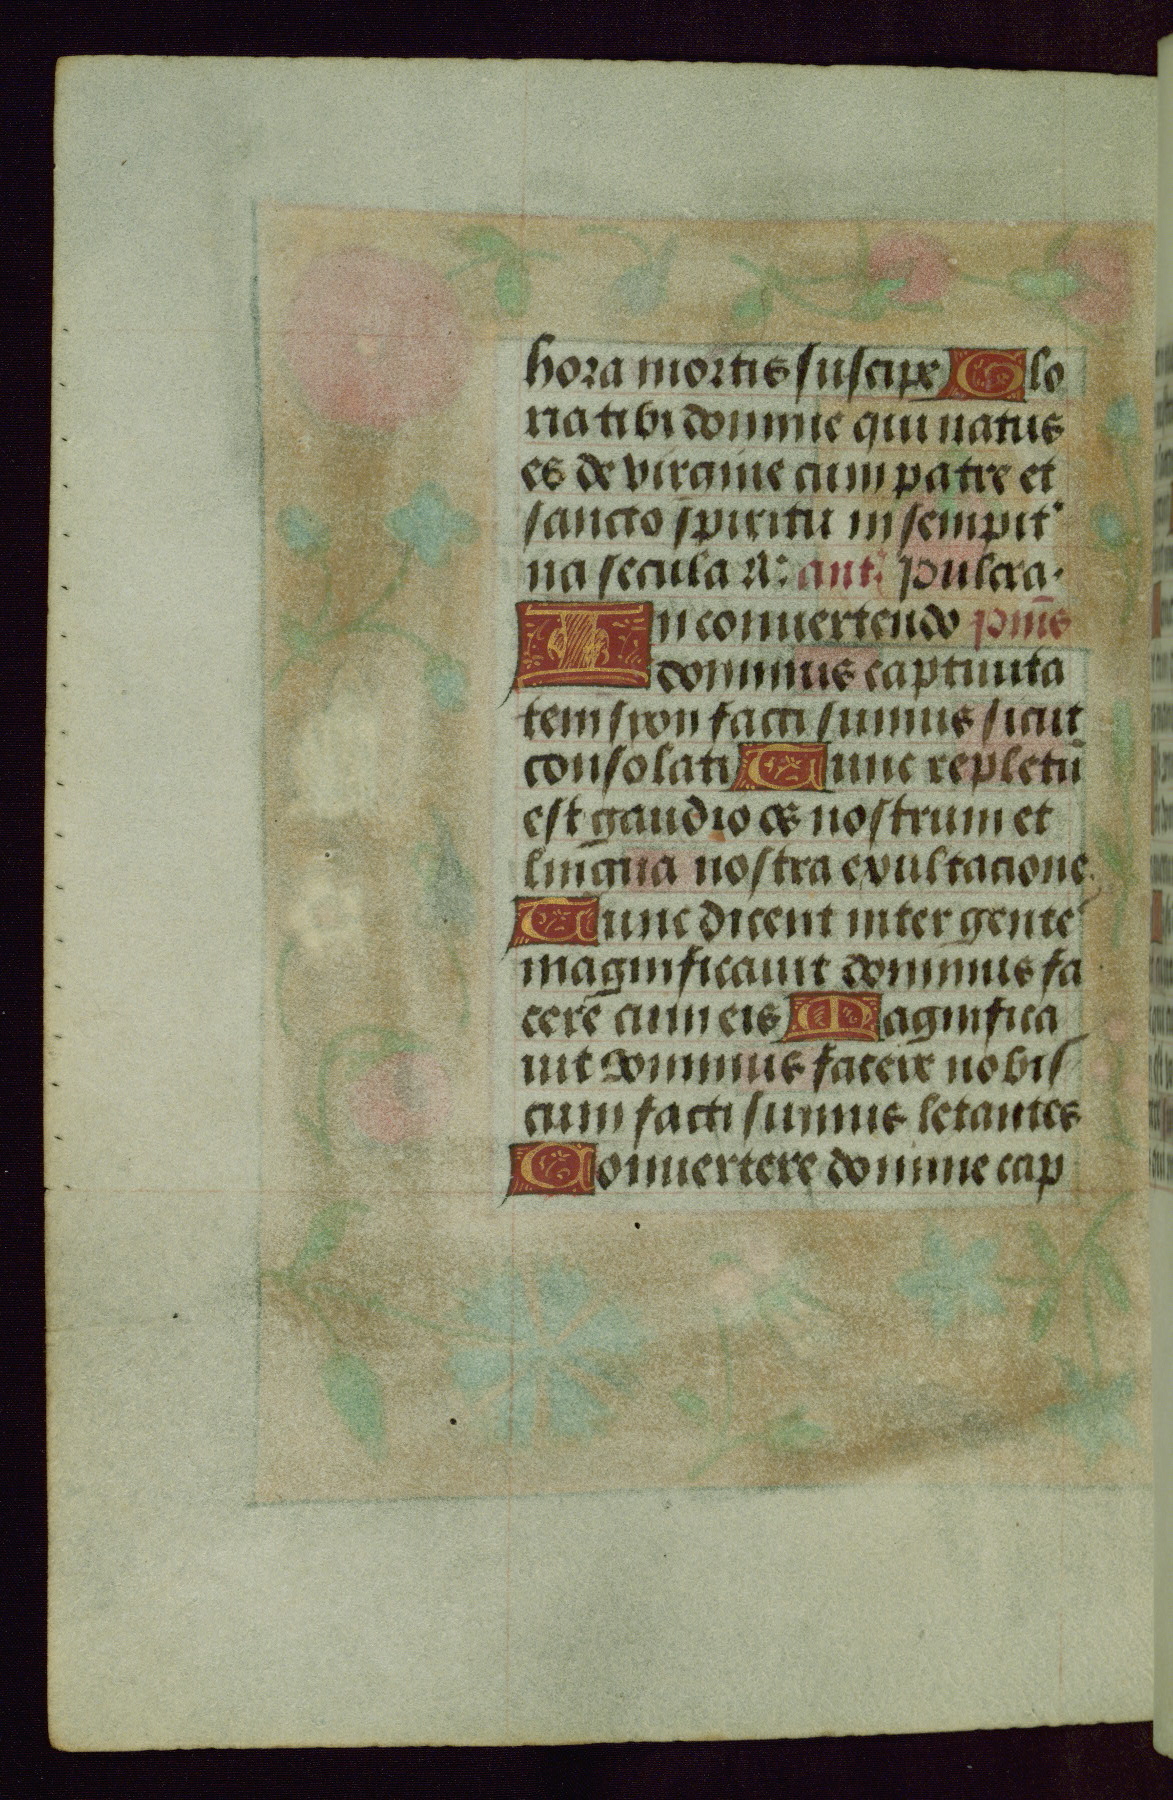 hora mortis suscipe Glo
ria tibi domine qui natus
es de virgine cum patre et
sancto spiritu in sempit'
na secula A: ant. Pulcra.
In conuertendo ps̄
dominus captiuita
tem syon facti sumus sicut
consolati Tunc repletū
est gaudio os nostrum et
lingua nostra exultacione
Tunc dicent inter gente'
magnificauit dominus fa
cere cum eis Magnifica
uit dominus facere nobis
cum facti sumus letantes
Conuertere domine cap